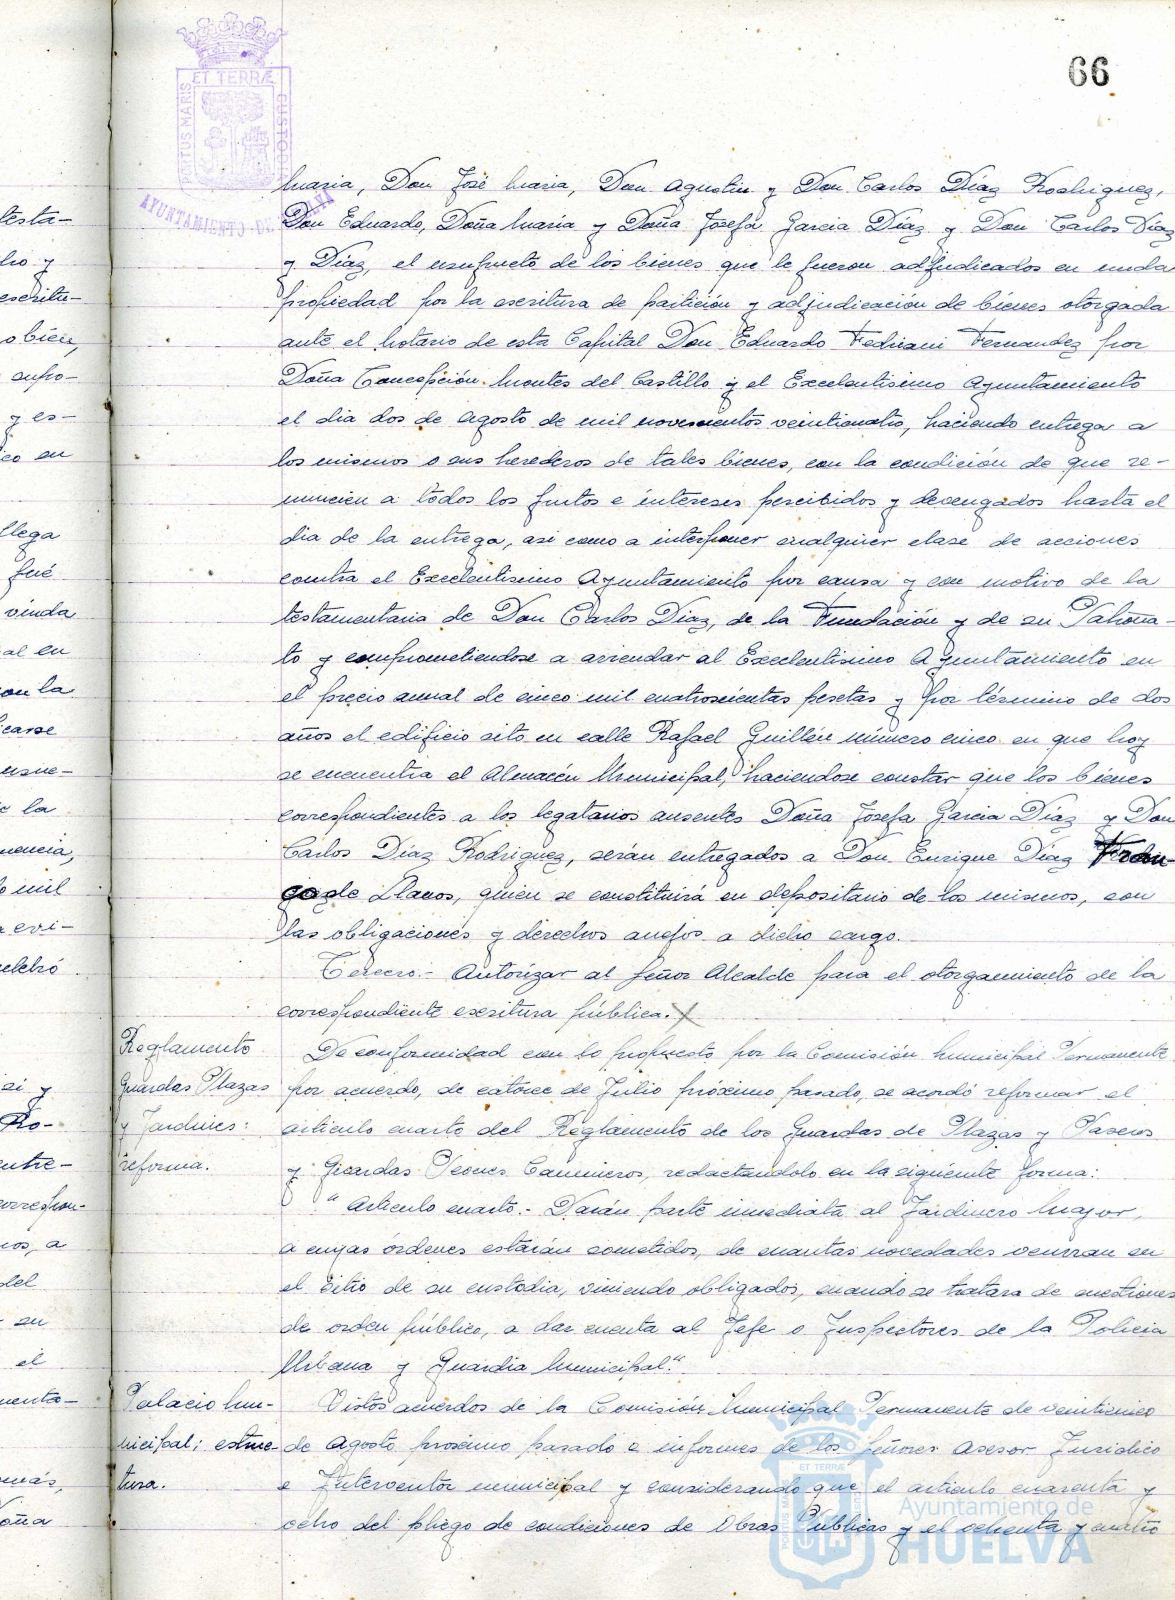 66
PORTUS MARIS ET TERRÆ CUSTODIA
AYUNTAMIENTO DE
Maria, Don José Maria, Don Agustin y Don Carlos Díaz Rodriguez,
Don Eduardo, Doña Maria y Doña Josefa Garcia Díaz y Don Carlos Díaz
y Díaz, el usufructo de los bienes que le fueron adjudicados en nuda
propiedad por la escritura de partición y adjudicación de bienes otorgada
ante el Notario de esta Capital Don Eduardo Fedriani Fernandez por
Doña Concepción Montes del Castillo y el Excelentisimo Ayuntamiento
el dia dos de Agosto de mil novecientos veinticuatro, haciendo entrega a
los mismos o sus herederos de tales bienes, con la condición de que re-
nuncien a todos los frutos e intereses percibidos y devengados hasta el
dia de la entrega, asi como a interponer cualquier clase de acciones
contra el Excelentisimo Ayuntamiento por causa y con motivo de la
testamentaria de Don Carlos Díaz, de la Fundación y de su Patrona-
to y comprometiendose a arrendar al Excelentisimo Ayuntamiento en
el precio anual de cinco mil cuatrocientas pesetas y por término de dos
años el edificio sito en calle Rafael Guillén número cinco en que hoy
se encuentra el Almacén Municipal, haciendose constar que los bienes
correspondientes a los legatarios ausentes Doña Josefa Garcia Díaz y Don
Carlos Díaz Rodriguez, serán entregados a Don Enrique Díaz
de Llanos, quien se constituirá en depositario de los mismos, con
las obligaciones y derechos anejos a dicho cargo.
Tercero.- Autorizar al Señor Alcalde para el otorgamiento de la
correspondiente escritura pública.
Reglamento
Guardas Plazas
y Jardines:
reforma.
De conformidad con lo propuesto por la Comisión Municipal Permanente
por acuerdo, de catorce de Julio próximo pasado, se acordó reformar el
articulo cuarto del Reglamento de los Guardas de Plazas y Paseos
y Guardas Peones Camineros, redactandolo en la siguiente forma:
"Articulo cuarto.- Darán parte inmediata al Jardinero Mayor,
a cuyas órdenes estarán sometidos, de cuantas novedades ocurran en
el sitio de su custodia, viniendo obligados, cuando se tratara de cuestiones
de orden público, a dar cuenta al Jefe o Inspectores de la Policia
Urbana y Guardia Municipal."
Palacio Mu-
nicipal; estruc-
tura.
Vistos acuerdos de la Comisión Municipal Permanente de veinticinco
de Agosto proximo pasado e informes de los Señores Asesor Juridico
e Interventor municipal y considerando que el articulo cuarenta y
ocho del pliego de condiciones de Obras Publicas y el ochenta y cuatro
testa-
y
escritu-
o bien,
y es-
en
llega
fué
viuda
al en
con la
carse
la
mil
evi-
y
entre-
correspon-
a
del
su
el
Ayuntamiento de
HUELVA